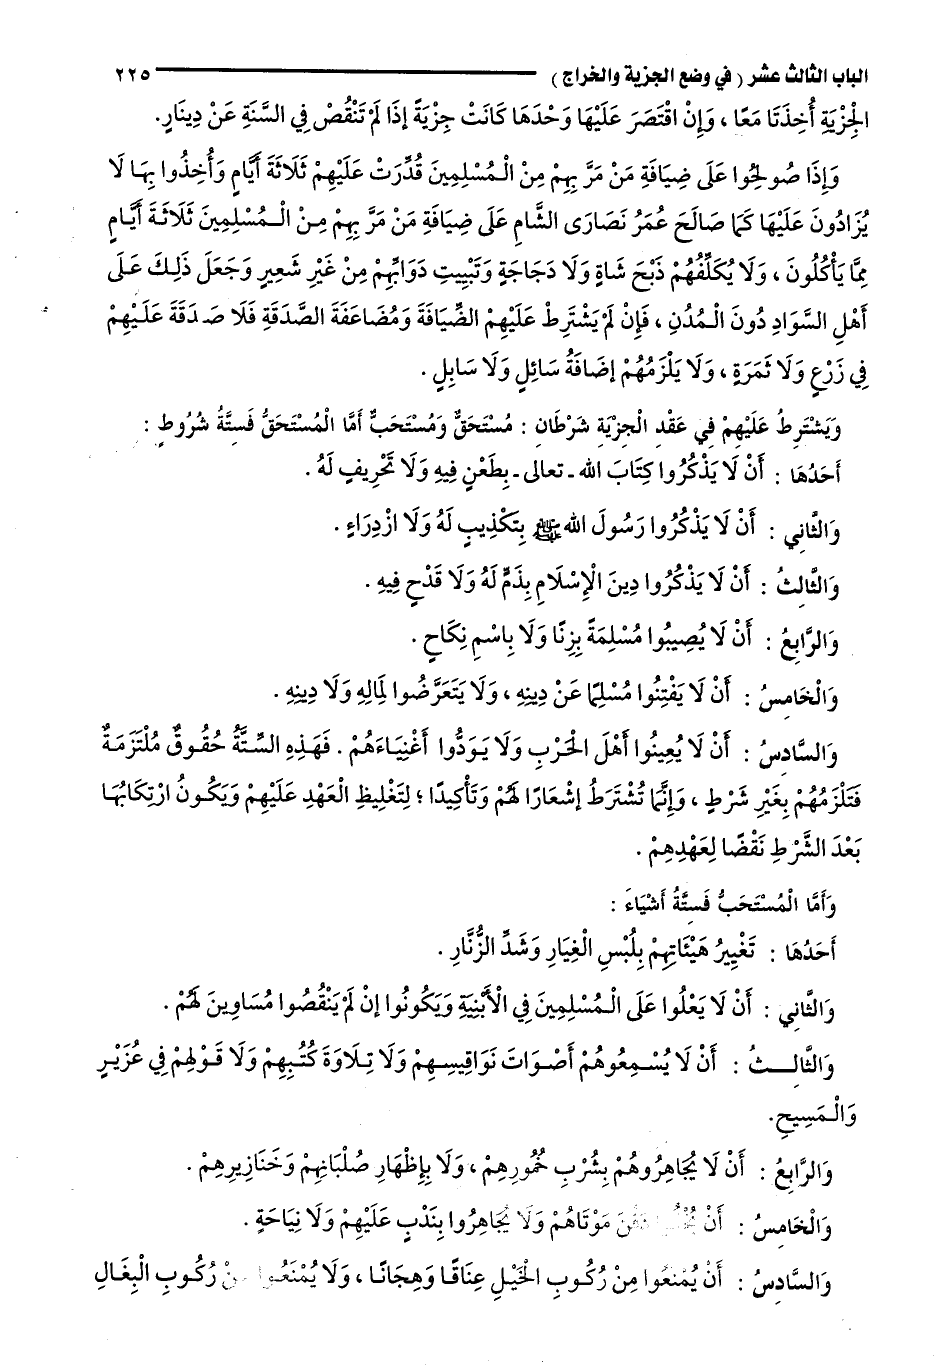 الباب الثالث عشر ( في وضع الجزية والخراج ) ٢٢٥
الْجِزْيَةِ أُخِذَتَا مَعًا ، وَإِنْ اقْتَصَرَ عَلَيْهَا وَحْدَهَا كَانَتْ جِزْيَةً إذَا لَمْ تَنْقُصْ فِي السَّنَةِ عَنْ دِينَارٍ.
وَإِذَا صُولِحُوا عَلَى ضِيَافَةِ مَنْ مَرَّ بِهِمْ مِنْ الْمُسْلِمِينَ قُدِّرَتْ عَلَيْهِمْ ثَلَاثَةَ أَيَّامٍ وَأُخِذُوا بِهَا لَا
يُزَادُونَ عَلَيْهَا كَمَا صَالَحَ عُمَرُ نَصَارَى الشَّامِ عَلَى ضِيَافَةِ مَنْ مَرَّ بِهِمْ مِنْ الْمُسْلِمِينَ ثَلَاثَةَ أَيَّامٍ
مِمَّا يَأْكُلُونَ ، وَلَا يُكَلِّفُهُمْ ذَبْحَ شَاةٍ وَلَا دَجَاجَةٍ وَتَبْيِيتَ دَوَابِّهِمْ مِنْ غَيْرِ شَعِيرٍ وَجَعَلَ ذَلِكَ عَلَى
أَهْلِ السَّوَادِ دُونَ الْمُدُنِ ، فَإِنْ لَمْ يَشْتَرِطْ عَلَيْهِمْ الضِّيَافَةَ وَمُضَاعَفَةَ الصَّدَقَةِ فَلَا صَدَقَةَ عَلَيْهِمْ
فِي زَرْعٍ وَلَا ثَمَرَةٍ ، وَلَا يَلْزَمُهُمْ إضَافَةُ سَائِلٍ وَلَا سَابِلٍ .
وَيَشْتَرِطُ عَلَيْهِمْ فِي عَقْدِ الْجِزْيَةِ شَرْطَانِ : مُسْتَحَقٌّ وَمُسْتَحَبٌّ أَمَّا الْمُسْتَحَقُّ فَسِتَّةُ شُرُوطٍ :
أَحَدُهَا : أَنْ لَا يَذْكُرُوا كِتَابَ الله ـ تعالى ـ بِطَعْنٍ فِيهِ وَلَا تَحْرِيفٍ لَهُ .
وَالثَّانِي : أَنْ لَا يَذْكُرُوا رَسُولَ الله ﷺ بِتَكْذِيبٍ لَهُ وَلَا ازْدِرَاءٍ .
وَالثَّالِثُ : أَنْ لَا يَذْكُرُوا دِينَ الْإِسْلَامِ بِذَمٍّ لَهُ وَلَا قَدْحٍ فِيهِ .
وَالرَّابِعُ : أَنْ لَا يُصِيبُوا مُسْلِمَةً بِزِنًا وَلَا بِاسْمِ نِكَاحٍ .
وَالْخَامِسُ : أَنْ لَا يَفْتِنُوا مُسْلِمًا عَنْ دِينِهِ ، وَلَا يَتَعَرَّضُوا لِمَالِهِ وَلَا دِينِهِ .
وَالسَّادِسُ : أَنْ لَا يُعِينُوا أَهْلَ الْحَرْبِ وَلَا يَوَدُّوا أَغْنِيَاءَهُمْ . فَهَذِهِ السِّتَّةُ حُقُوقٌ مُلْتَزَمَةٌ
فَتَلْزَمُهُمْ بِغَيْرِ شَرْطٍ ، وَإِنَّمَا تُشْتَرَطُ إشْعَارًا لَهُمْ وَتَأْكِيدًا ؛ لِتَغْلِيظِ الْعَهْدِ عَلَيْهِمْ وَيَكُونُ ارْتِكَابُهَا
بَعْدَ الشَّرْطِ نَقْضًا لِعَهْدِهِمْ .
وَأَمَّا الْمُسْتَحَبُّ فَسِتَّةُ أَشْيَاءَ :
أَحَدُهَا : تَغْيِيرُ هَيْئَاتِهِمْ بِلُبْسِ الْغِيَارِ وَشَدِّ الزُّنَّارِ .
وَالثَّانِي : أَنْ لَا يَعْلُوا عَلَى الْمُسْلِمِينَ فِي الْأَبْنِيَةِ وَيَكُونُوا إنْ لَمْ يَنْقُصُوا مُسَاوِينَ لَهُمْ .
وَالثَّالِـثُ : أَنْ لَا يُسْمِعُوهُمْ أَصْوَاتَ نَوَاقِيسِهِمْ وَلَا تِلَاوَةَ كُتُبِهِمْ وَلَا قَوْلِهِمْ فِي عُزَيْرٍ
وَالْمَسِيحِ.
وَالرَّابِعُ : أَنْ لَا يُجَاهِرُوهُمْ بِشُرْبِ خُمُورِهِمْ ، وَلَا بِإِظْهَارِ صُلْبَانِهِمْ وَخَنَازِيرِهِمْ .
وَالْخَامِسُ : أَنْ يُخْفُوا دَفْنَ مَوْتَاهُمْ وَلَا يُجَاهِرُوا بِنَدْبٍ عَلَيْهِمْ وَلَا نِيَاحَةٍ .
وَالسَّادِسُ : أَنْ يُمْنَعُوا مِنْ رُكُوبِ الْخَيْلِ عِتَاقًا وَهِجَانًا ، وَلَا يُمْنَعُوا مِنْ رُكُوبِ الْبِغَالِ